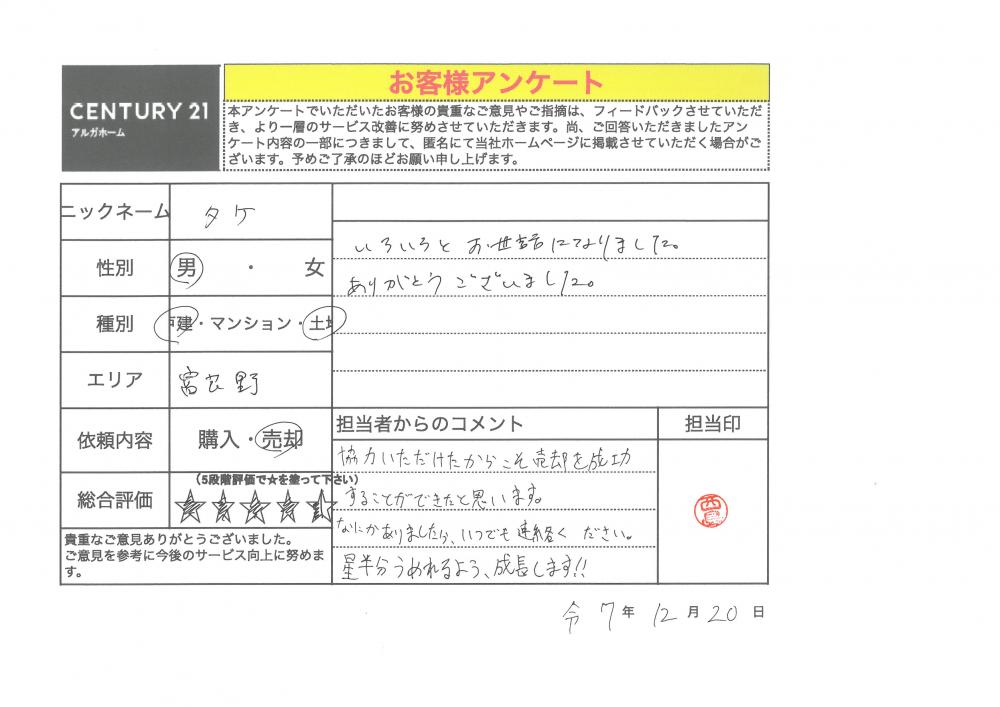 CENTURY 21
アルガホーム
お客様アンケート
本アンケートでいただいたお客様の貴重なご意見やご指摘は、フィードバックさせていただ
き、より一層のサービス改善に努めさせていただきます。尚、ご回答いただきましたアン
ケート内容の一部につきまして、匿名にて当社ホームページに掲載させていただく場合がご
ざいます。予めご了承のほどお願い申し上げます。
ニックネーム タケ
性別 男・女
種別 戸建・マンション・土地
エリア 富田野
依頼内容 購入・売却
総合評価 (5段階評価で★を塗って下さい)
貴重なご意見ありがとうございました。
ご意見を参考に今後のサービス向上に努めま
す。
いろいろと お世話になりました。
ありがとう ございました。
担当者からのコメント
協力いただけたからこそ売却を成功
することができたと思います。
なにかありましたら、いつでも連絡く ださい。
星半分うめれるよう、成長します!!
担当印
令 7年 12月 20日